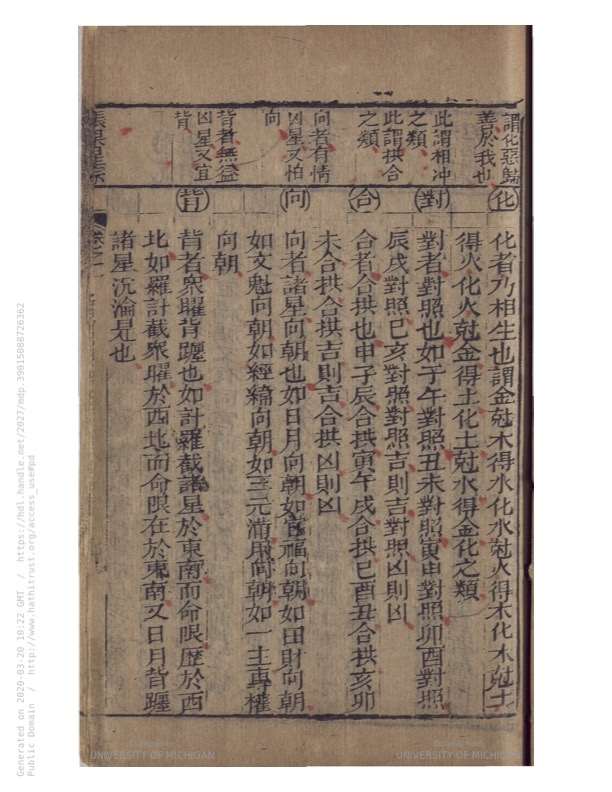 謂化惡歸
善於我也
此謂相冲
之類
此謂拱合
之類
向者有情
凶星又怕
向
背者無益
凶星又宜
背
化
化者乃相生也謂金尅木得水化水尅火得木化木尅土
得火化火尅金得土化土尅水得金化之類
對
對者對照也如子午對照丑未對照寅申對照卯酉對照
辰戌對照巳亥對照對照吉則吉對照凶則凶
合
合者合拱也申子辰合拱寅午戌合拱巳酉丑合拱亥卯
未合拱合拱吉則吉合拱凶則凶
向
向者諸星向朝也如日月向朝如官福向朝如田財向朝
如文魁向朝如經緯向朝如三元滿用向朝如一主再權
向朝
背
背者衆曜背躔也如計羅截諸星於東南而命限歷於西
北如羅計截衆曜於西北而命限在於東南又日月背躔
諸星沉淪是也
卷之一
Generated on 2020-03-20 10:22 GMT / https://hdl.handle.net/2027/mdp.39015088726362
Public Domain / http://www.hathitrust.org/access_use#pd
UNIVERSITY OF MICHIGAN
UNIVERSITY OF MICHIGAN